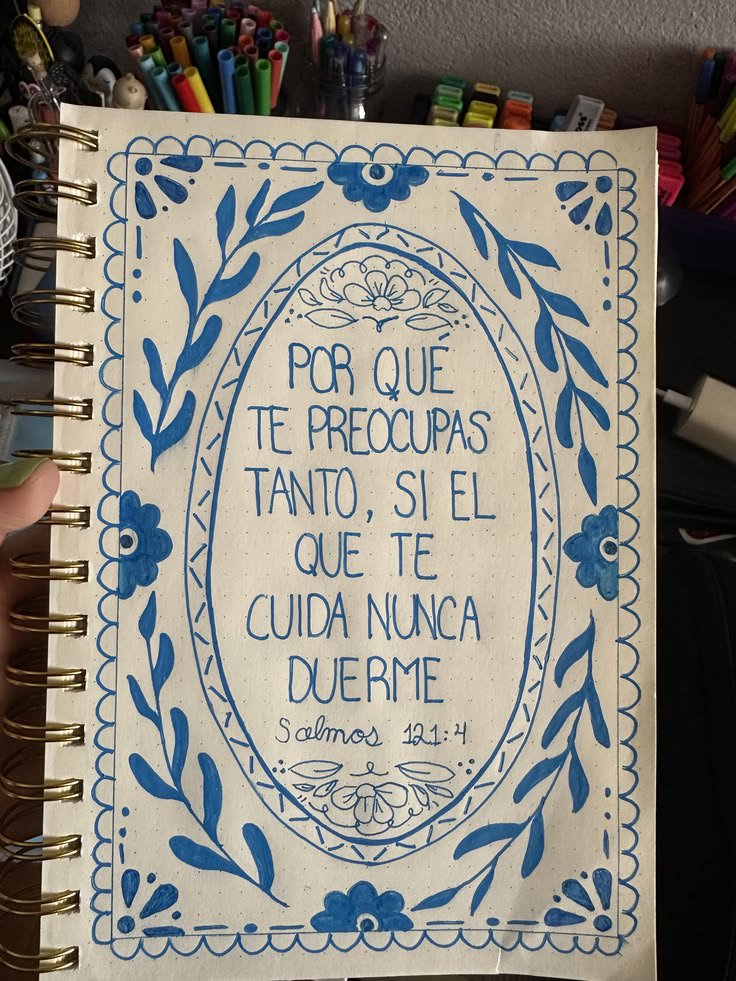 POR QUÉ
TE PREOCUPAS
TANTO, SI EL
QUE TE
CUIDA NUNCA
DUERME
Salmos 121:4